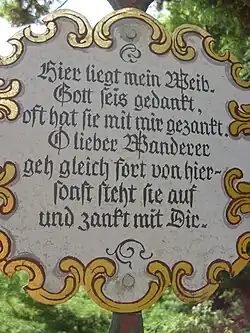 Hier liegt mein Weib.
Gott seis gedankt,
oft hat sie mit mir gezankt.
O lieber Wanderer
geh gleich fort von hier-
sonst steht sie auf
und zankt mit Dir.